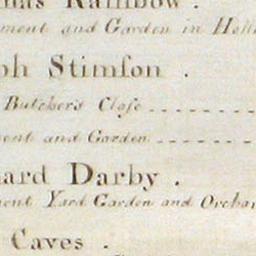 mas Rainbow .
ment and Garden in Holl
ph Stimſon .
Butchers Cloſe
ment and Garden
ard Darby .
ment Yard Garden and Orchar
Caves .